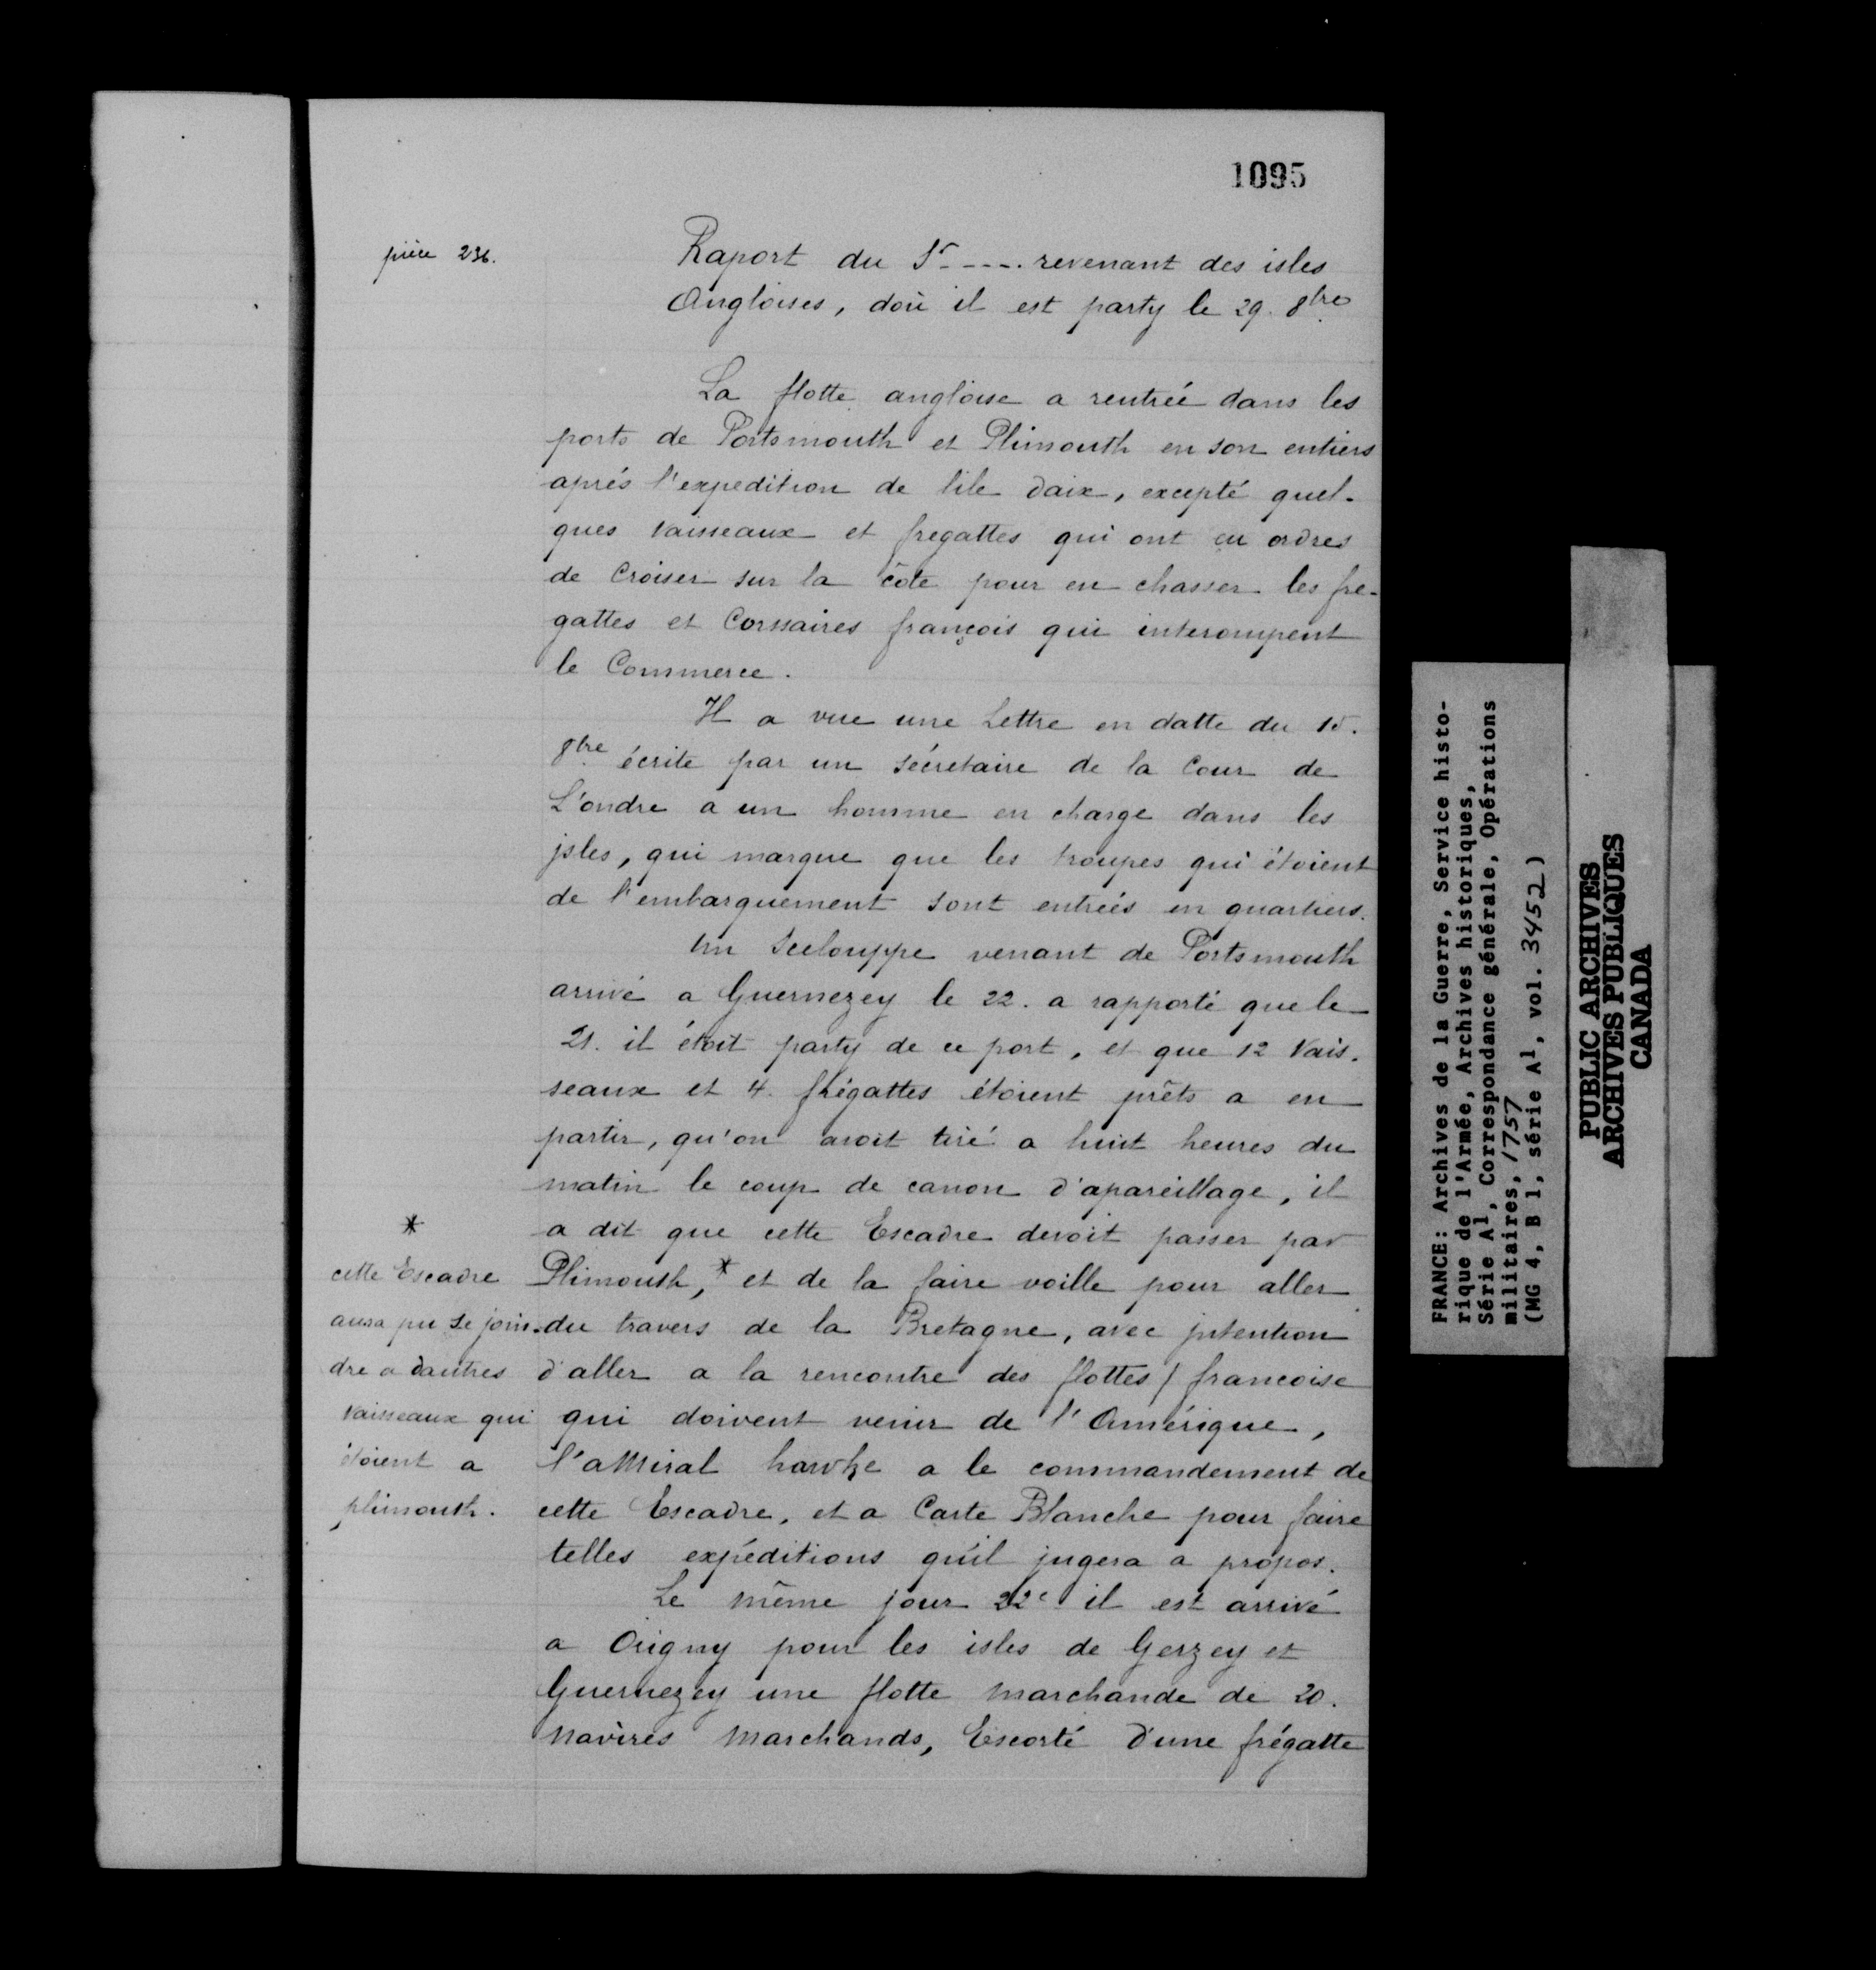 1095
pièce 236.
Raport du Sr ---- revenant des isles
Angloises, doù il est party le 29. 8bre
La flotte angloise a rentrée dans les
ports de Portsmouth et Plimouth en son entiers
aprés l'expedition de lile daix, excepté quel-
ques vaisseaux et fregattes qui ont eu ordres
de Croiser sur la côte pour en chasser les fre-
gattes et Corssaires françois qui interompent
le Commerce.
Il a vue une Lettre en datte du 15.
8bre écrite par un sécretaire de la Cour de
L'ondre a un homme en charge dans les
jsles, qui marque que les troupes qui étoient
de l'embarquement sont entrées en quartiers.
Un Seelouppe venant de Portsmouth
arrivé a Guernezey le 22. a rapporté que le
21. il étoit party de ce port, et que 12 Vais-
seaux et 4. frégattes étoient prêts a en
partir, qu'on avoit tiré a huit heures du
matin le coup de canon d'apareillage, il
a dit que cette Escadre devoit passer par
Plimouth,* et de la faire voille pour aller
du travers de la Bretagne, avec jntention
d'aller a la rencontre des flottes / francoise
qui doivent venir de l'Amérique,
l'aMiral hawke a le commandement de
cette Escadre, et a Carte Blanche pour faire
telles expéditions qu'il jugera a propos.
Le même jour 22e il est arrivé
a Origny pour les isles de Gerzey et
Guernezey une flotte marchande de 20.
Navires Marchands, Escorté d'une frégatte
*
cette Escadre
aura pu se join-
dre a dautres
vaisseaux qui
étoient a
plimouth.
FRANCE: Archives de la Guerre, Service histo-
rique de l'Armée, Archives historiques,
Série A1, Correspondance générale, Opérations
militaires, 1757
(MG 4, B 1, série A1, vol. 3452)
PUBLIC ARCHIVES
ARCHIVES PUBLIQUES
CANADA